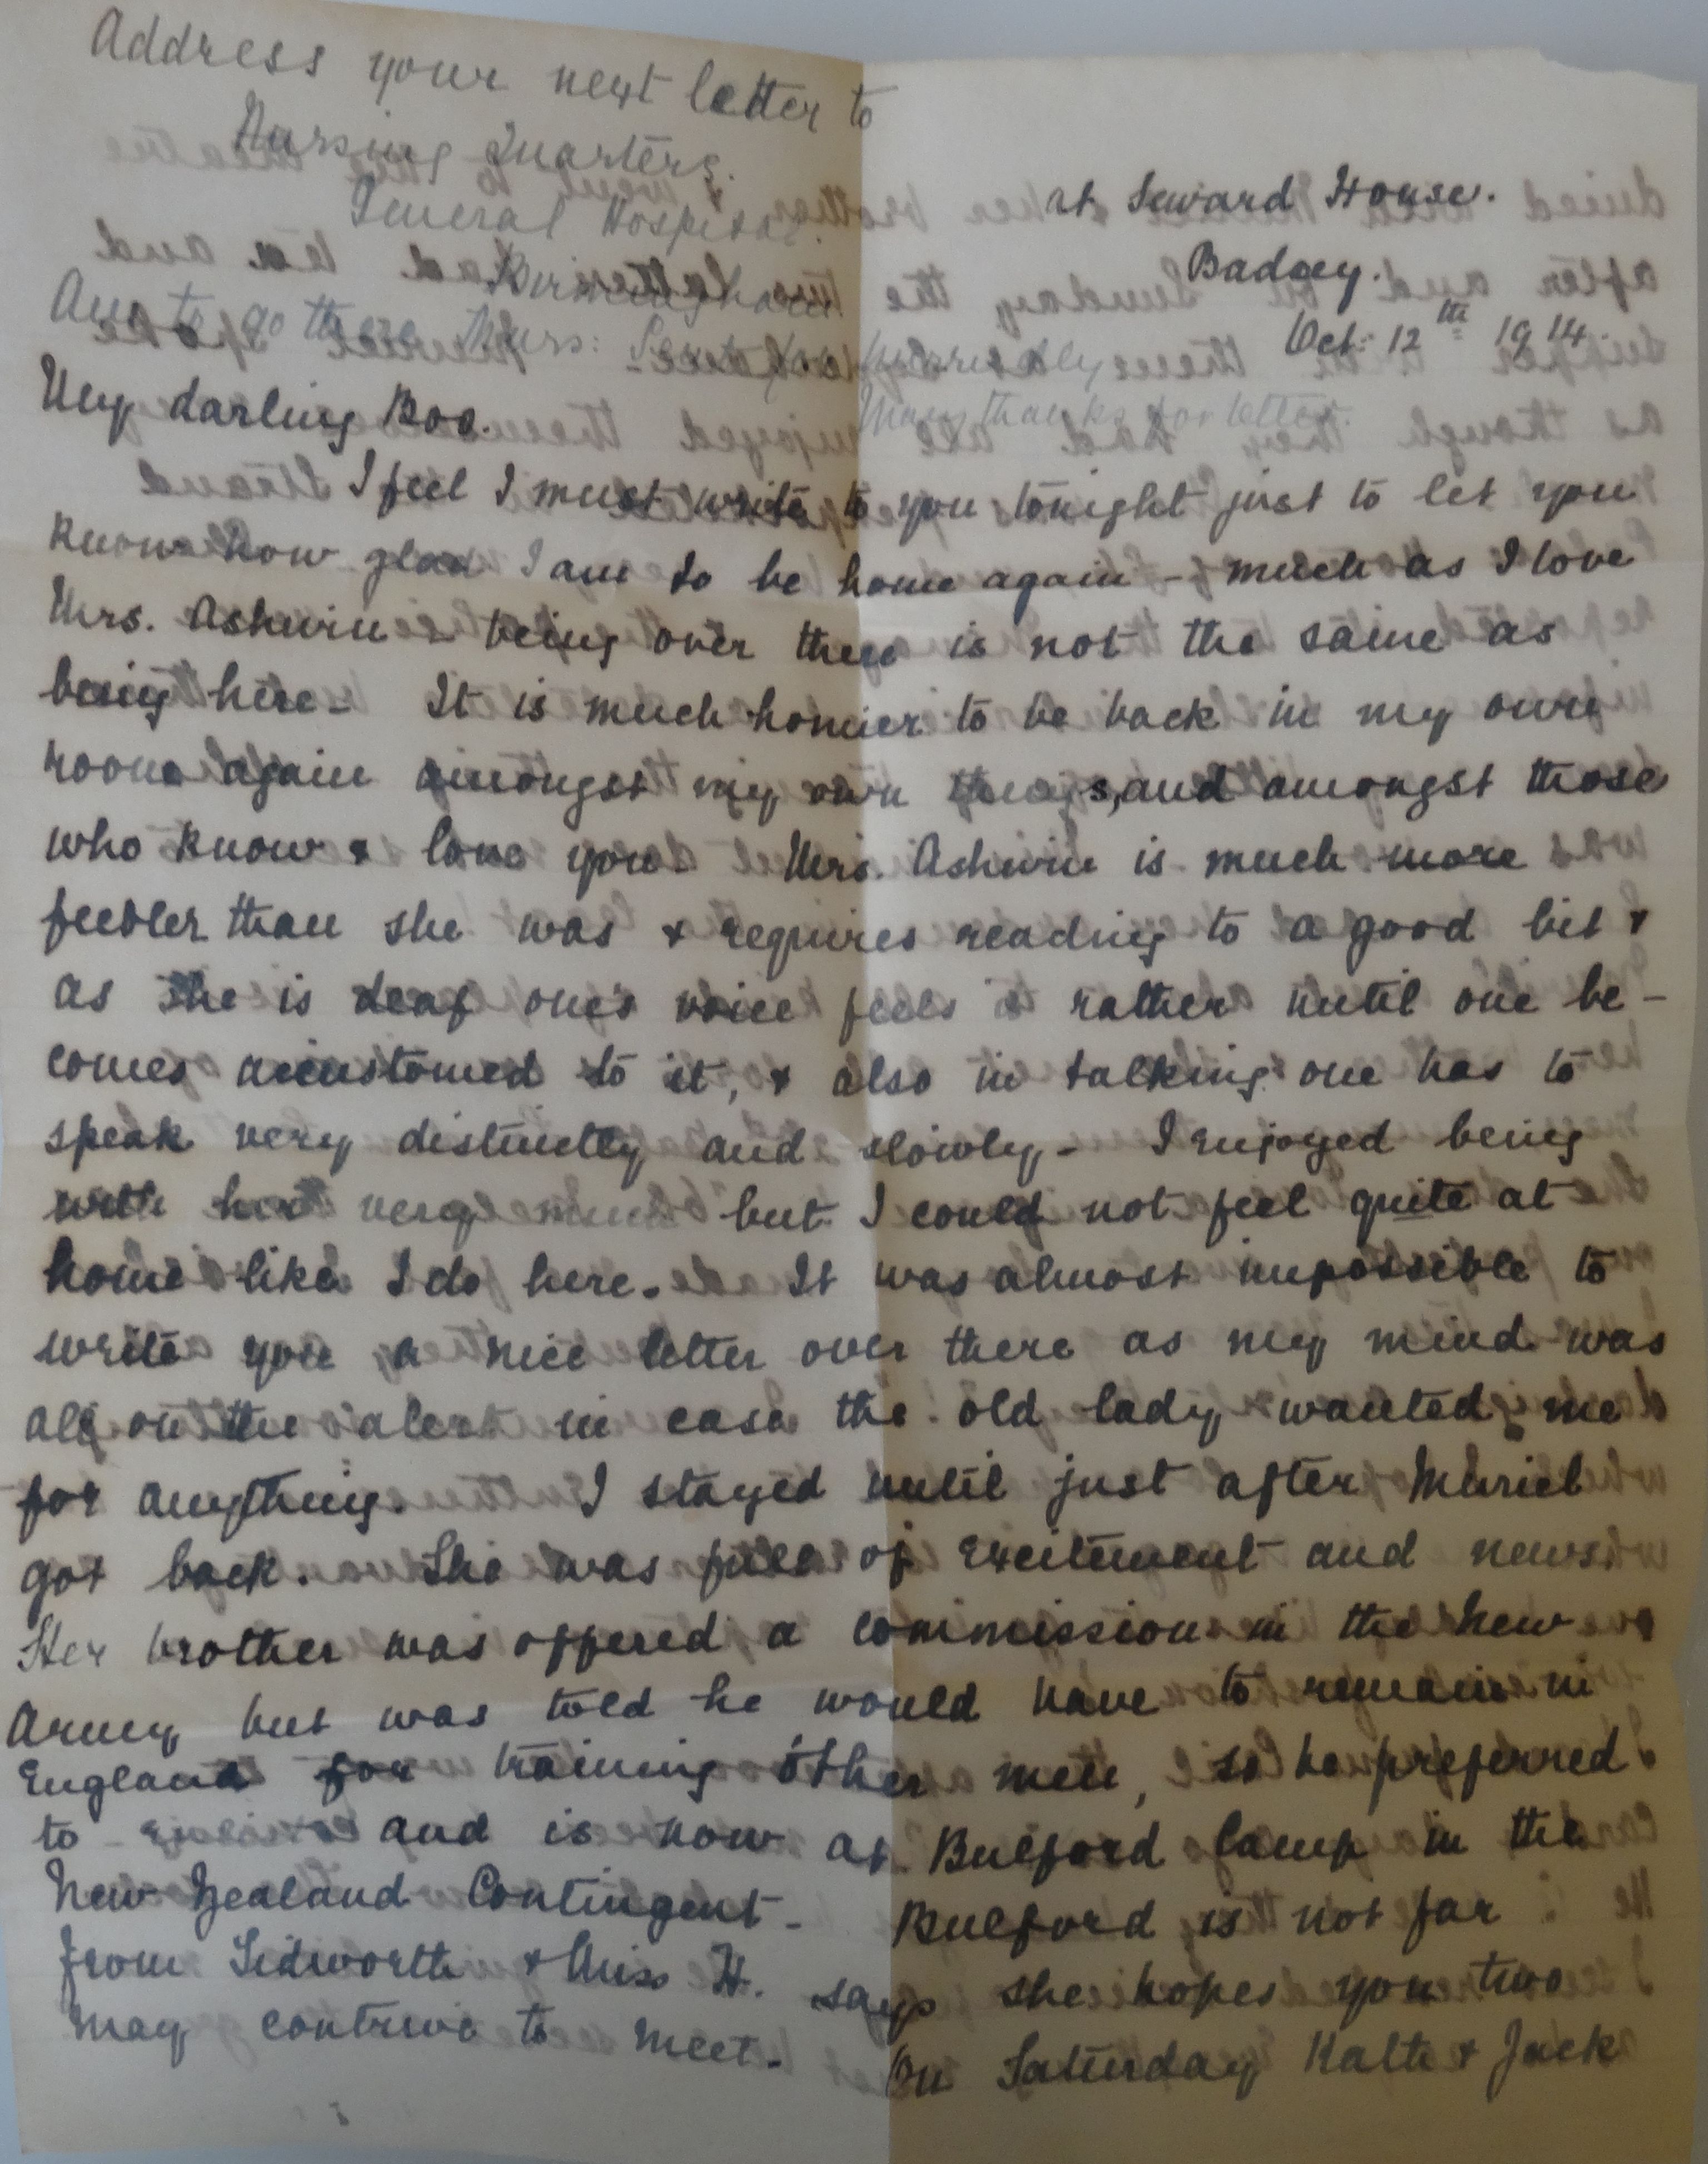 Address your next letter to
Nursing Quarters.
General Hospital.
Birmingham.
Am to go there Thurs:
Many thanks for letter.
at Seward House.
Badsey.
Oct: 12th 1914.
My darling Boo.
I feel I must write to you tonight just to let you
know how glad I am to be home again - much as I love
Mrs. Ashwin - being over there is not the same as
being here - It is much homier to be back in my own
room again amongst my own things, and amongst those
who know & love you - Mrs. Ashwin is much more
feebler than she was & requires reading to a good bit &
as she is deaf one's voice feels it rather until one be-
comes accustomed to it, & also in talking one has to
speak very distinctly and slowly - I enjoyed being
with her very much but I could not feel quite at
home like I do here. It was almost impossible to
write you a nice letter over there as my mind was
all on the alert in case the old lady wanted me
for anything. I stayed until just after Muriel
got back. She was full of excitement and news.
Her brother was offered a commission in the new
Army but was told he would have to remain in
England for training other men, so he preferred
to and is now at Bulford Camp in the
New Zealand Contingent - Bulford is not far
from Tidworth & Miss H. says she hopes you two
may contrive to meet - On Saturday Kate & Jack